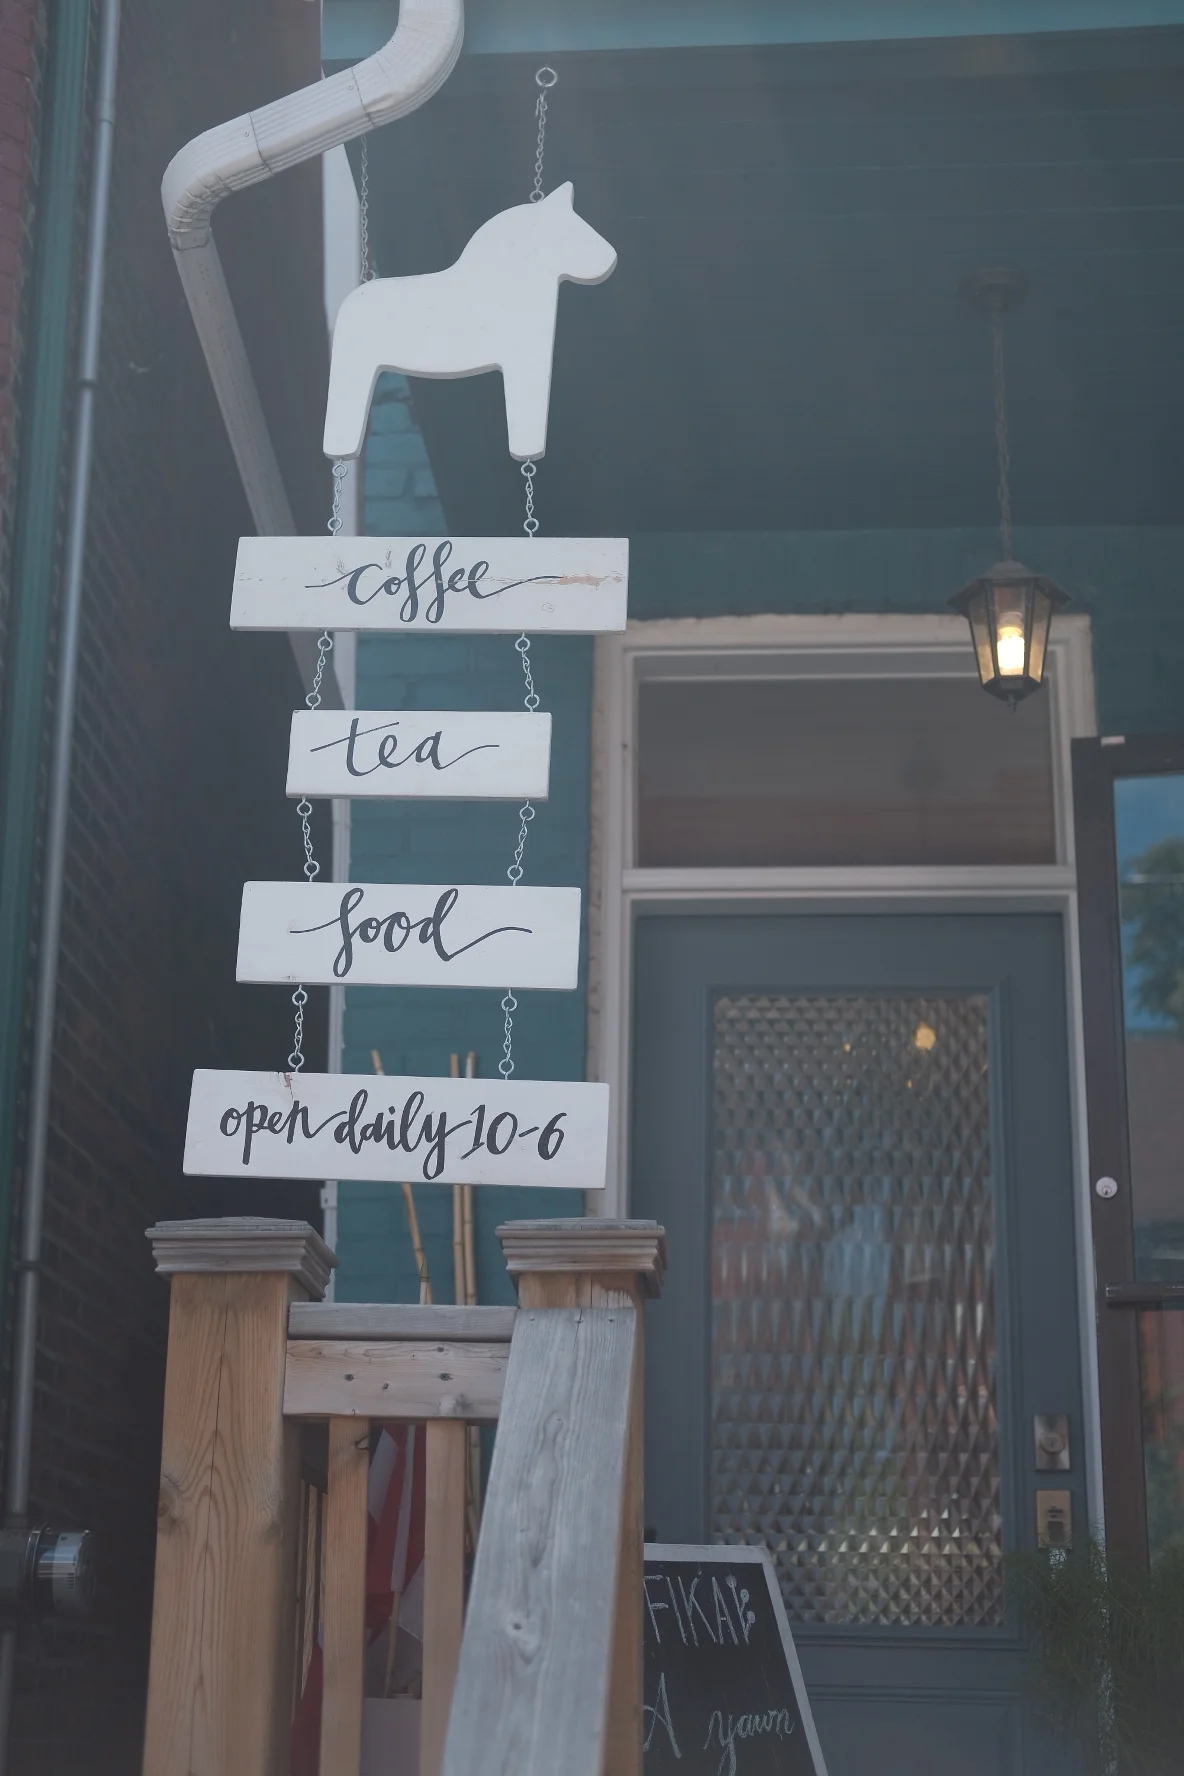 coffee
tea
food
open daily 10-6
FIKA
A yawn